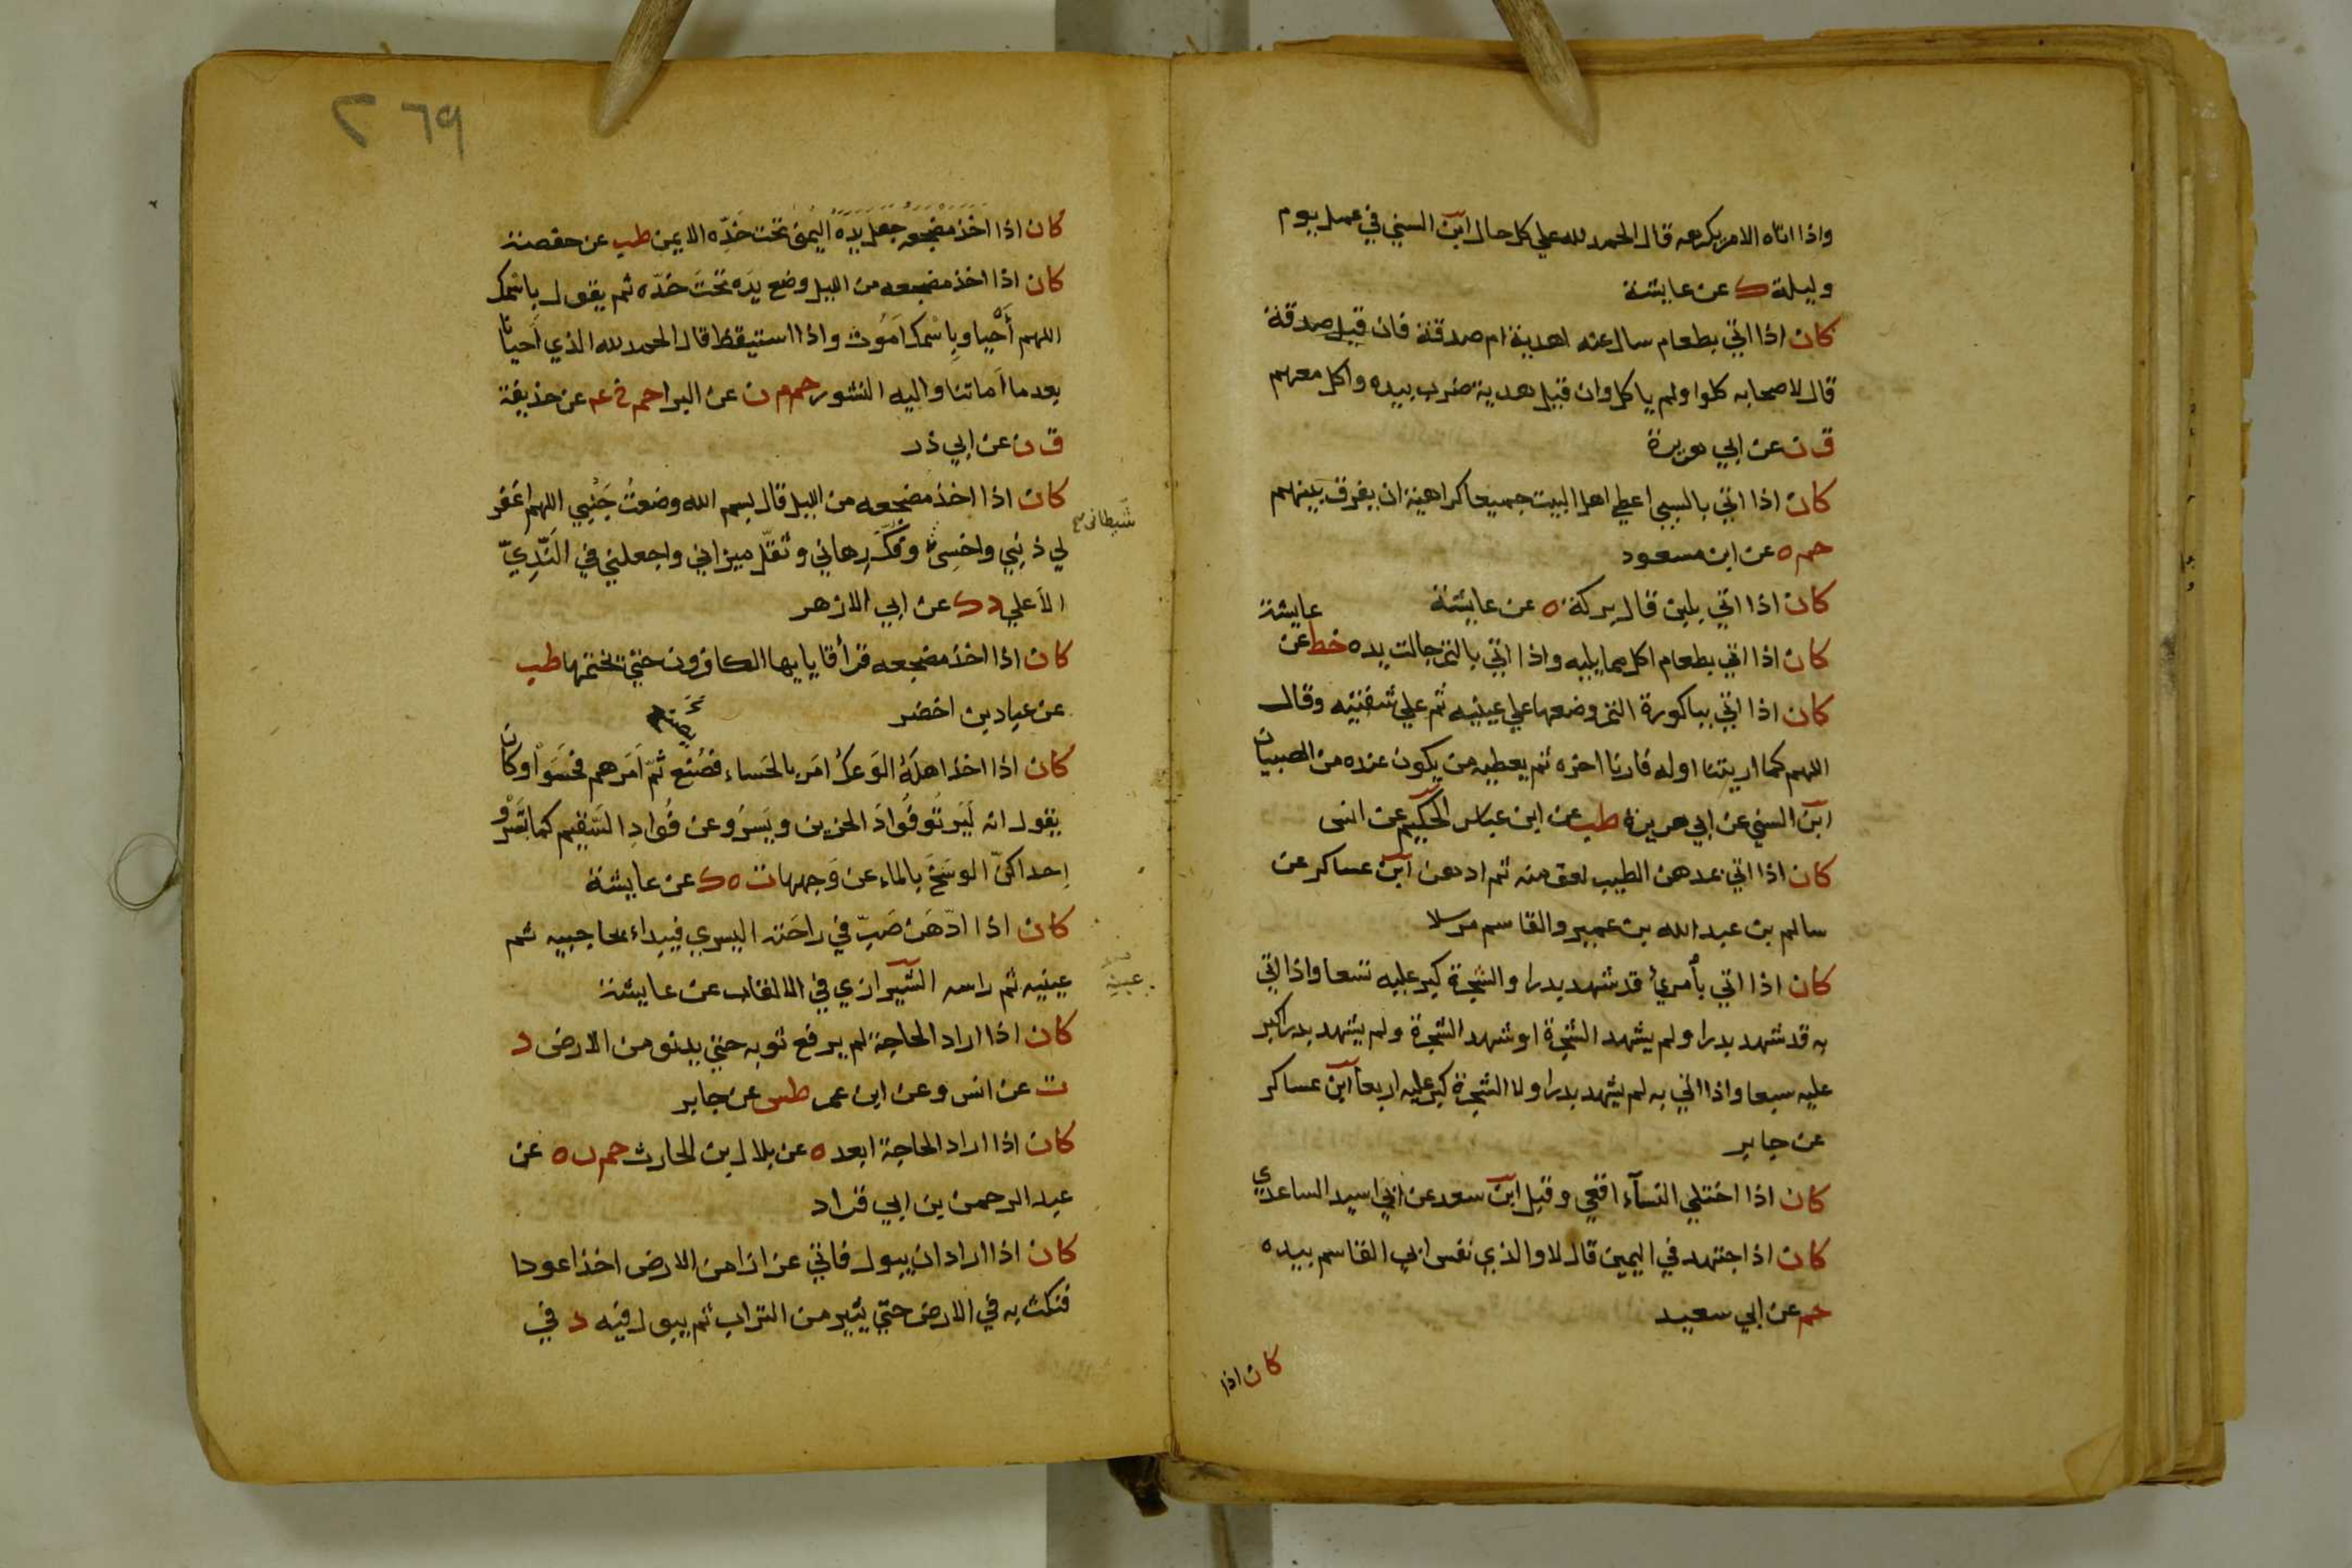 واذا اتاه الامر يكرهه قال الحمد لله علي كل حال ابن السني في عمل يوم
وليلة ك عن عايشة
كان اذا اتي بطعام سال عنه اهدية ام صدقة فان قيل صدقة
قال لاصحابه كلوا ولم ياكل وان قيل هدية ضرب بيده واكل معهم
ق ن عن ابي هريرة
كان اذا اتي بالسبي اعطي اهل البيت جميعا كراهية ان يفرق بينهم
حم ه عن ابن مسعود
كان اذا اتي بلبن قال بركة ه عن عايشة
كان اذا اتي بطعام اكل مما يليه واذا اتي بالتمر جالت يده خط عن عايشة
كان اذا اتي بباكورة الثمر وضعها علي عينيه ثم علي شفتيه وقال
اللهم كما اريتنا اوله فارنا اخره ثم يعطيه من يكون عنده من الصبيان
ابن السني عن ابي هريرة طب عن ابن عباس الحكيم عن انس
كان اذا اتي بمدهن الطيب لعق منه ثم ادهن ابن عساكر عن
سالم بن عبد الله بن عمير والقاسم مرسلا
كان اذا اتي بأمرئ قد شهد بدرا والشجرة كبر عليه تسعا واذا اتي
به قد شهد بدرا ولم يشهد الشجرة او شهد الشجرة ولم يشهد بدرا كبر
عليه سبعا واذا اتي به لم يشهد بدرا ولا الشجرة كبر عليه اربعا ابن عساكر
عن جابر
كان اذا اختلي النسآء اقعي وقبل ابن سعد عن ابي اسيد الساعدي
كان اذا اجتهد في اليمين قال لا والذي نفس ابي القاسم بيده
حم عن ابي سعيد
كان اذا
٢٦٩
كان اذا اخذ مضجعه جعل يده اليمنى تحت خدّه الايمن طب عن حفصة
كان اذا اخذ مضجعه من الليل وضع يده تحت خدّه ثم يقول باسمك
اللهم أحيا وباسمك اموت واذا استيقظ قال الحمد لله الذي أحيانا
بعد ما أماتنا واليه النشور حم م ن عن البرا حم خ عم عن حذيفة
ق ن عن ابي ذر
كان اذا اخذ مضجعه من الليل قال بسم الله وضعت جنبي اللهم اغفر
لي ذنبي واخسئ وفكّ رهاني وثقّل ميزاني واجعلني في النّديّ
شيطاني صح
الأعلي د ك عن ابي الازهر
كان اذا اخذ مضجعه قرأ قل يا يها الكافرون حتي تختمها طب
عن عباد بن اخضر
كان اذا اخذ اهلَهُ الوَعكُ امَر بالحَساء فصُنع ثمّ اَمَرهم فحَسَوْا وكان
يقول انه لَيَرتُو فُوادَ الحزين ويَسرُو عن فُوادِ السّقيم كما تَسْرُو
اِحداكنّ الوسَخَ بالماء عن وَجهها ت ه ك عن عايشة
كان اذا ادّهَن صَبّ في راحَته اليسري فيبداء بحاجبيه ثم
عينيه ثم راسه الشيرازي في الالقاب عن عايشة
كان اذا اراد الحاجة لم يرفع ثوبه حتي يدنو من الارض د
ت عن انس وعن ابن عمر طس عن جابر
كان اذا اراد الحاجة ابعد ه عن بلال بن الحارث حم ن ه عن
عبد الرحمن بن ابي قراد
كان اذا اراد ان يبول فاتي عزازا من الارض اخذ عودا
فنكث به في الارض حتي يثير من التراب ثم يبول فيه د في